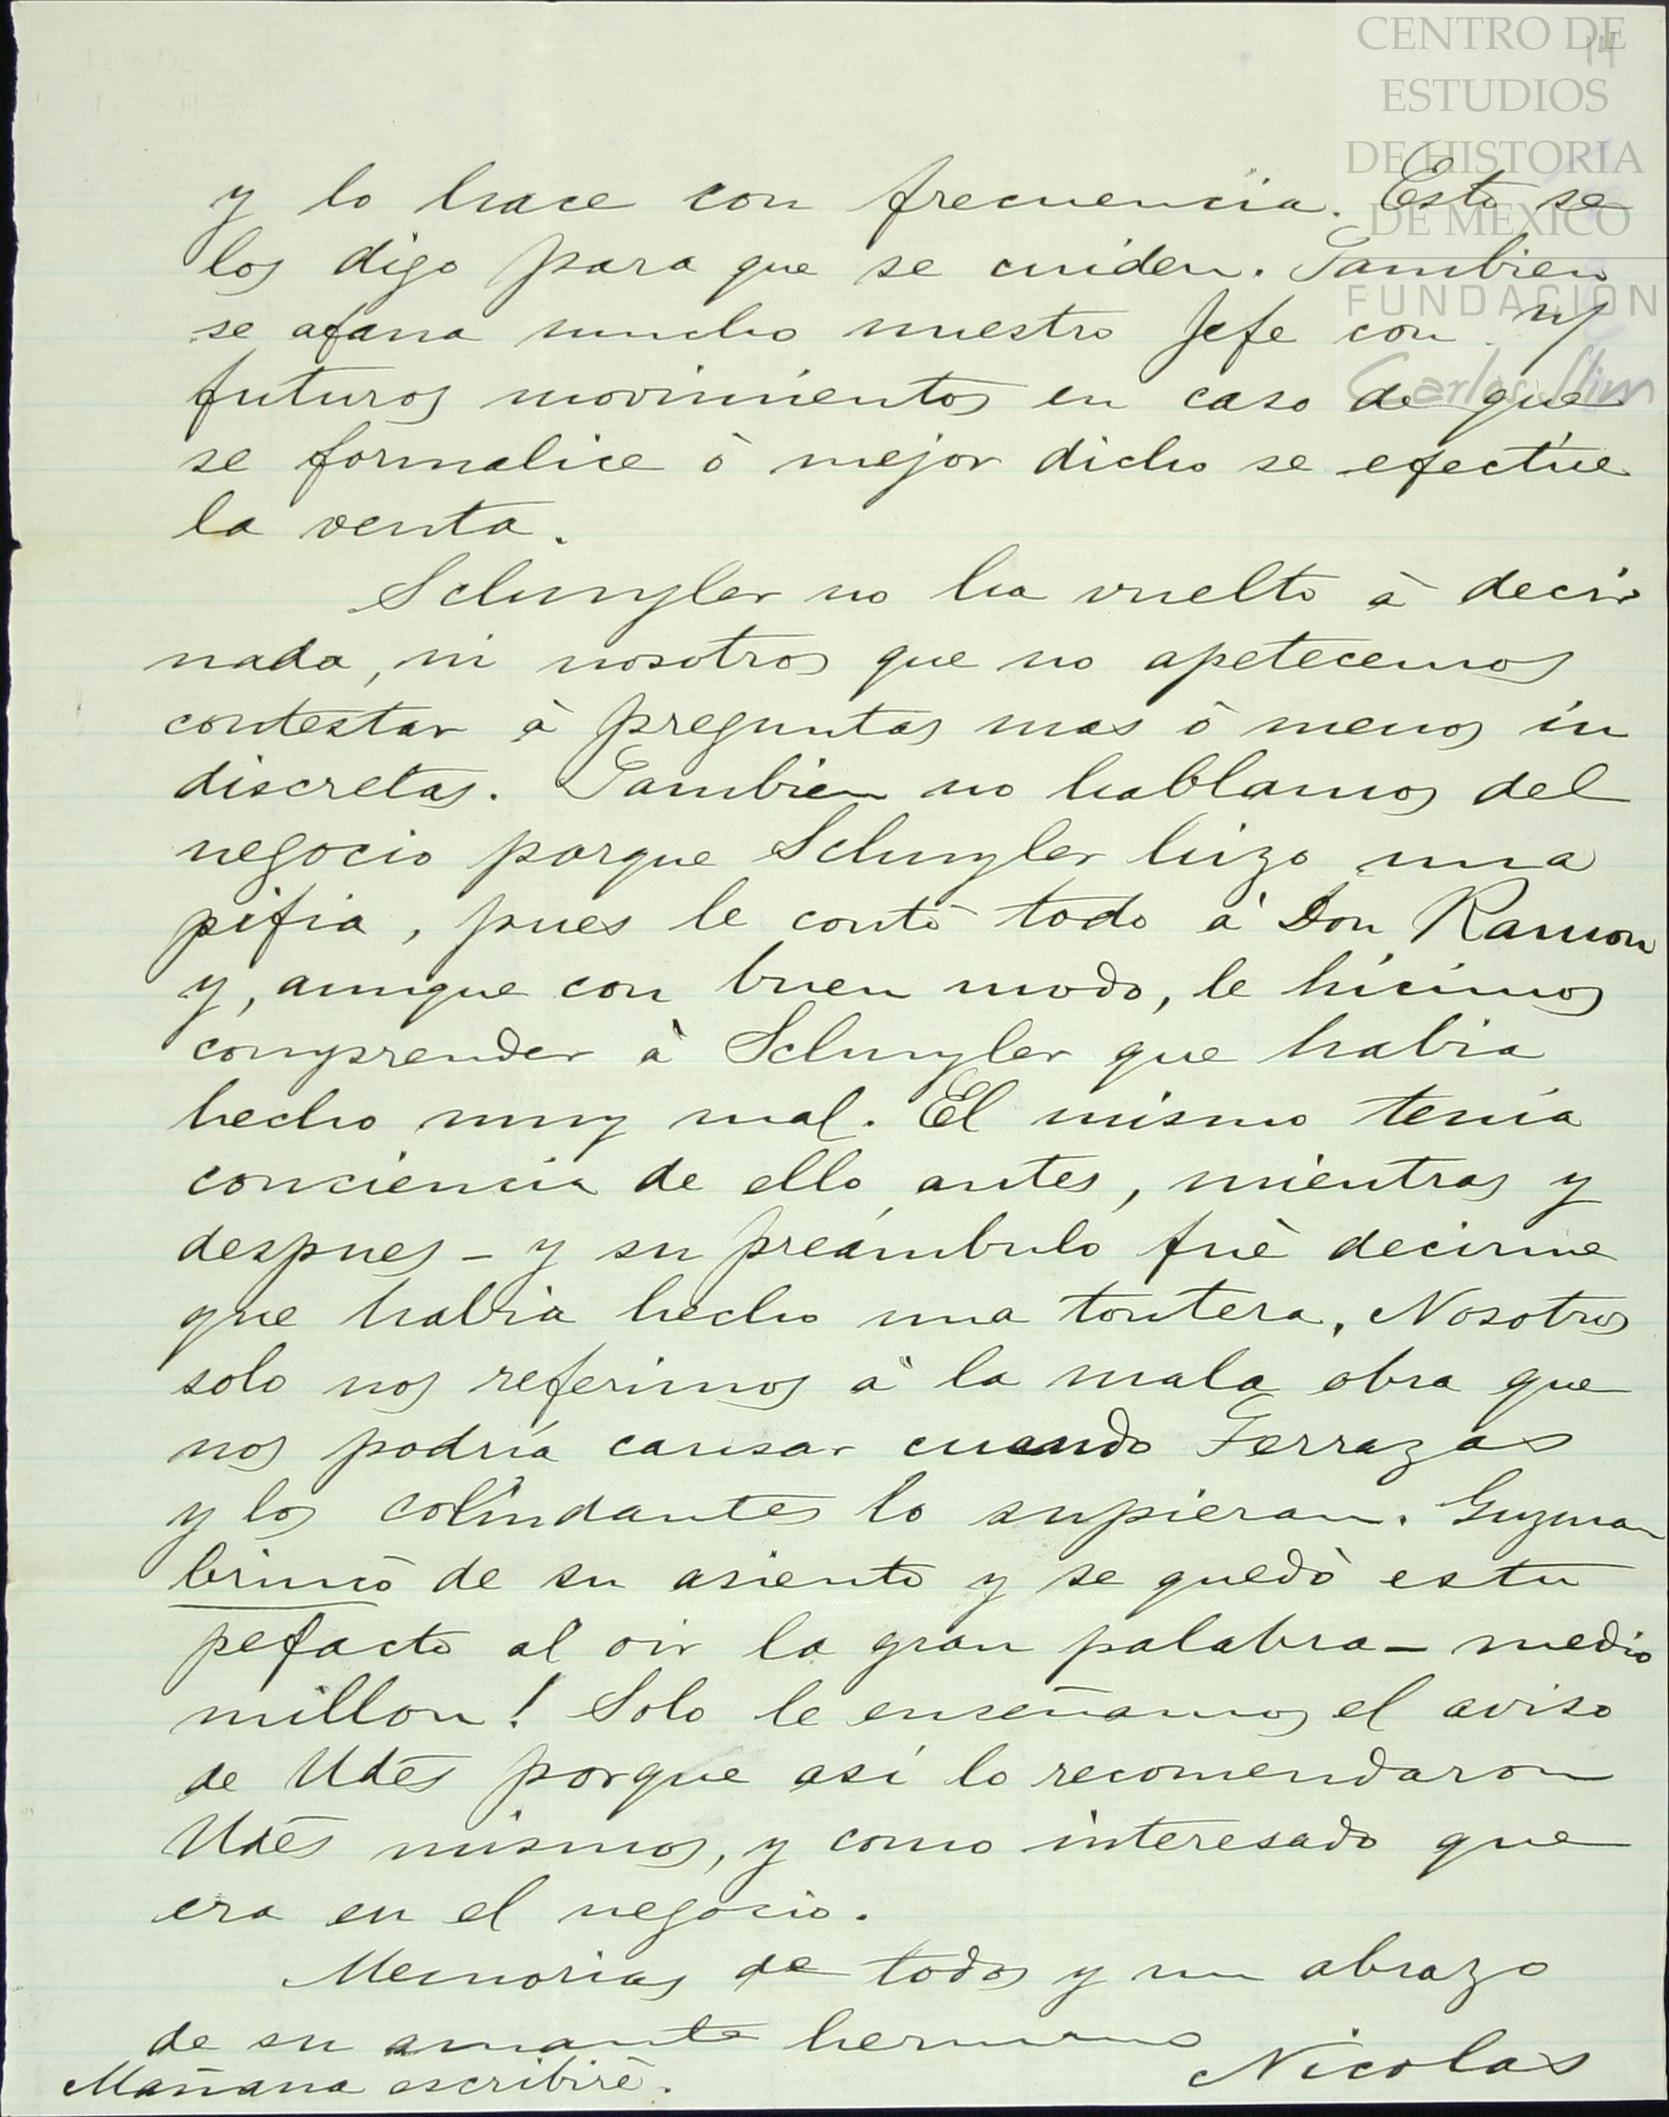 14
CENTRO DE
ESTUDIOS
DE HISTORIA
DE MEXICO
FUNDACION
Carlos Slim
y lo hace con frecuencia. Esto se
los digo para que se cuiden. Tambien
se afana mucho nuestro Jefe con n/
futuros movimientos en caso de que
se formalice ò mejor dicho se efectúe
la venta.
Schuyler no ha vuelto à decir
nada, ni nosotros que no apetecemos
contestar à preguntas mas ò menos in
discretas. Tambien no hablamos del
negocio porque Schuyler hizo una
pifia, pues le contò todo à Don Ramon
y, aunque con buen modo, le hicimos
comprender à Schuyler que habia
hecho muy mal. El mismo tenia
conciencia de ello, antes, mientras y
despues - y su preámbulo fuè decirme
que habia hecho una tontera. Nosotros
solo nos referimos à la mala obra que
nos podría causar cuando Terrazas
y los colindantes lo supieran. Guzman
brincò de su asiento y se quedò estu
pefacto al oir la gran palabra - medio
millon! Solo le enseñamos el aviso
de Udes porque asi lo recomendaron
Udes mismos, y como interesado que
era en el negocio.
Memorias de todos y un abrazo
de su amante hermano
Nicolas
Mañana escribirè.